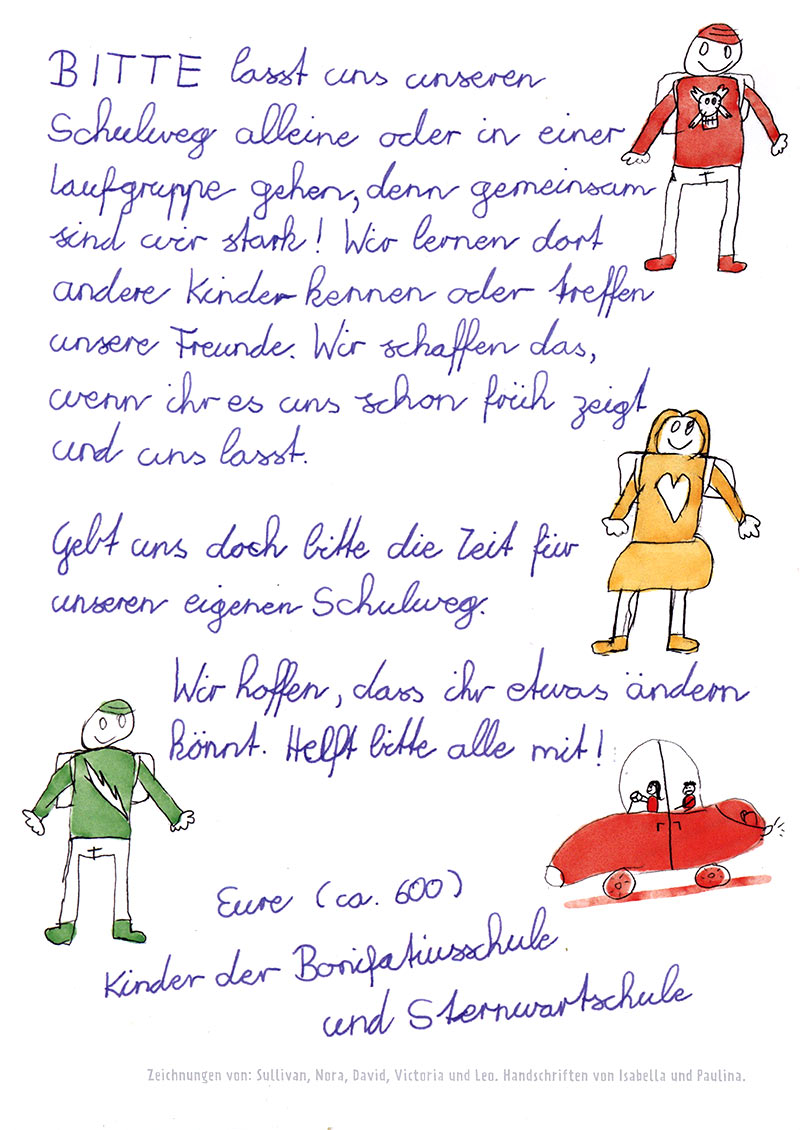 BITTE lasst uns unseren
Schulweg alleine oder in einer
Laufgruppe gehen, denn gemeinsam
sind wir stark! Wir lernen dort
andere Kinder kennen oder treffen
unsere Freunde. Wir schaffen das,
wenn ihr es uns schon früh zeigt
und uns lasst.
Gebt uns doch bitte die Zeit für
unseren eigenen Schulweg.
Wir hoffen, dass ihr etwas ändern
könnt. Helft bitte alle mit!
Eure (ca. 600)
Kinder der Bonifatiusschule
und Sternwartschule
Zeichnungen von: Sullivan, Nora, David, Victoria und Leo. Handschriften von Isabella und Paulina.